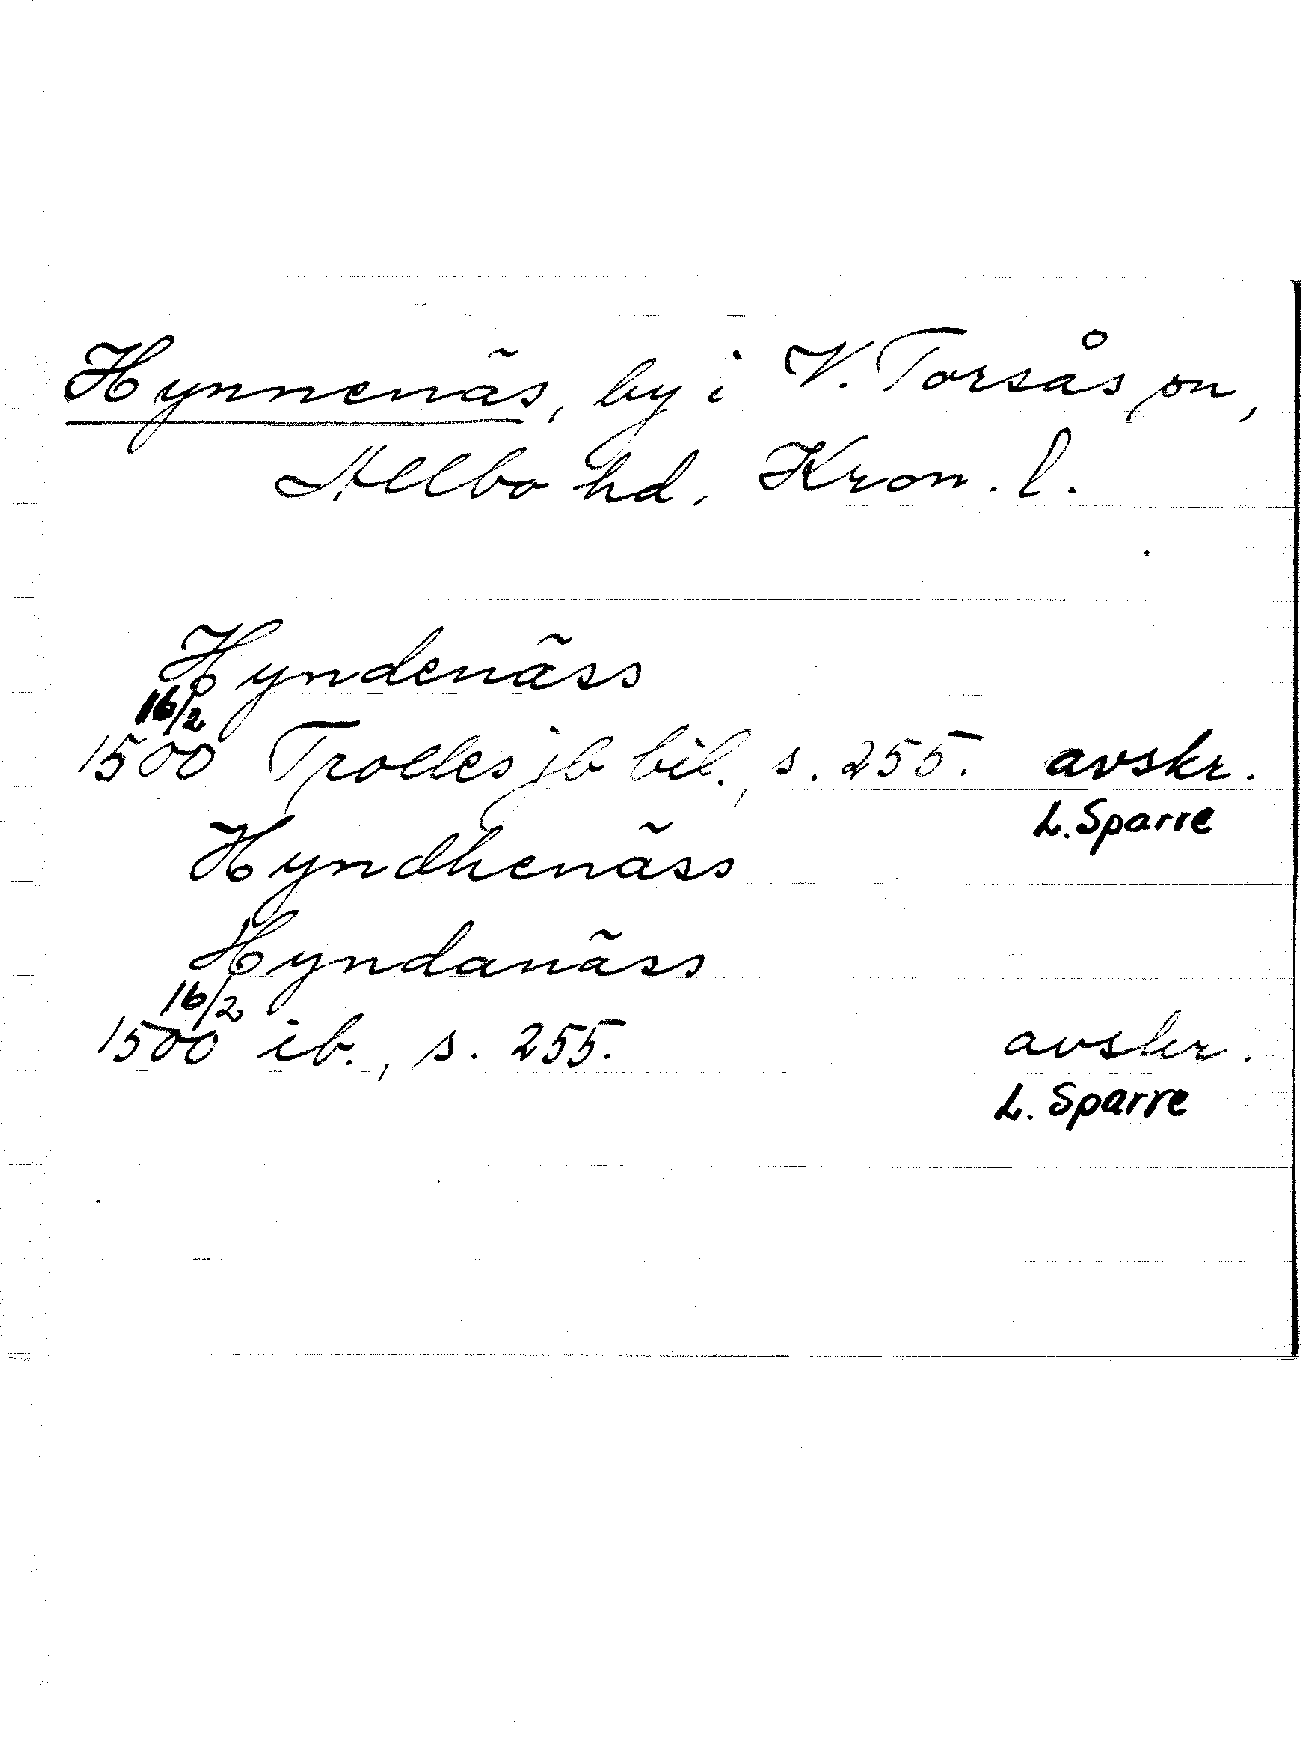 Hynnenäs, by i V. Torsås sn,
Allbo hd, Kron. l.
Hyndenäss
16/2
1500 Trolles jb bil., s. 255. avskr.
L. Sparre
Hyndhenäss
Hyndanäss
16/2
1500 ib., s. 255. avskr.
L. Sparre